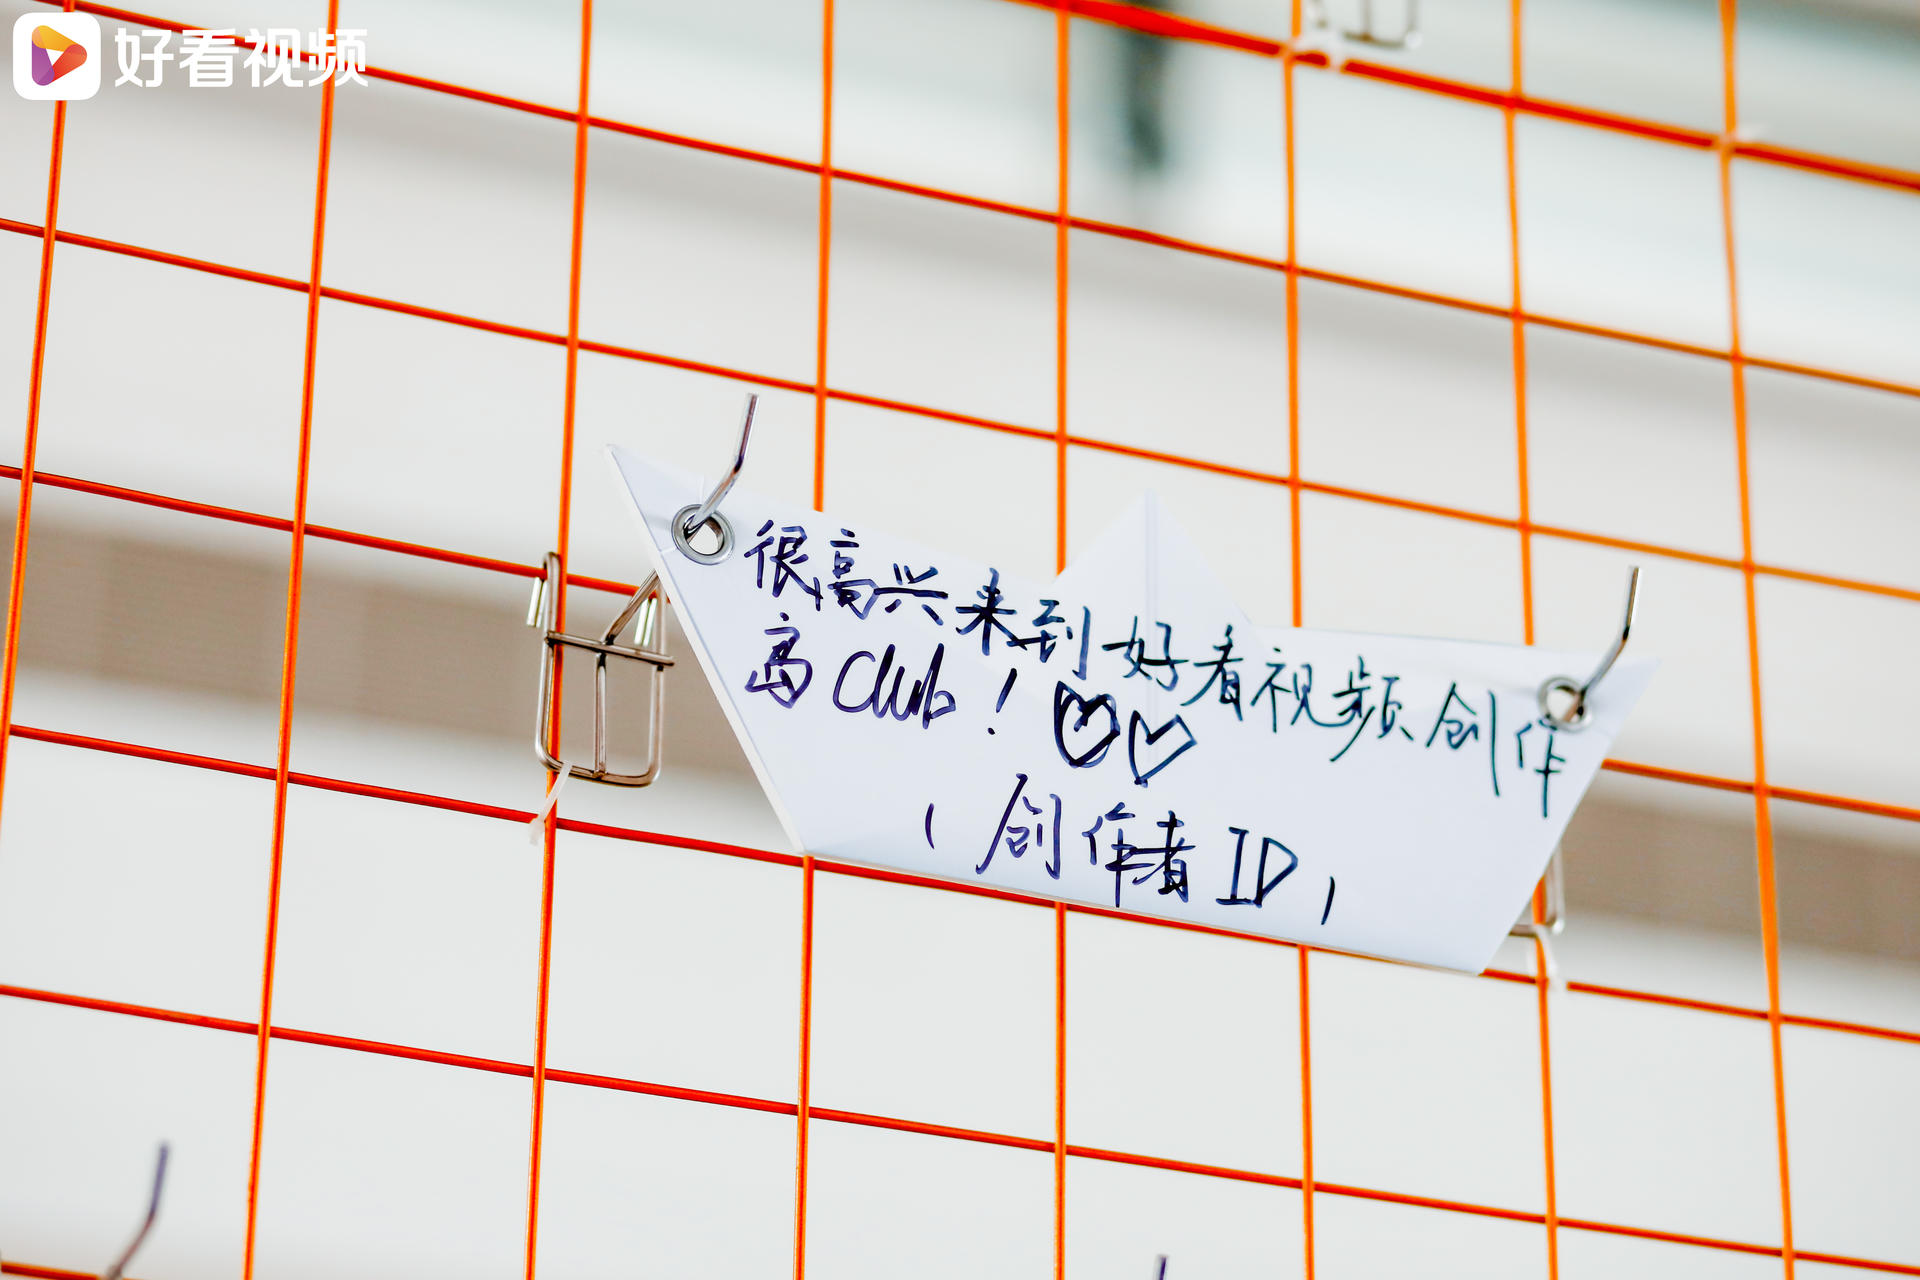 好看视频
很高兴来到好看视频创作
高Club！♡♡
（创作者ID）